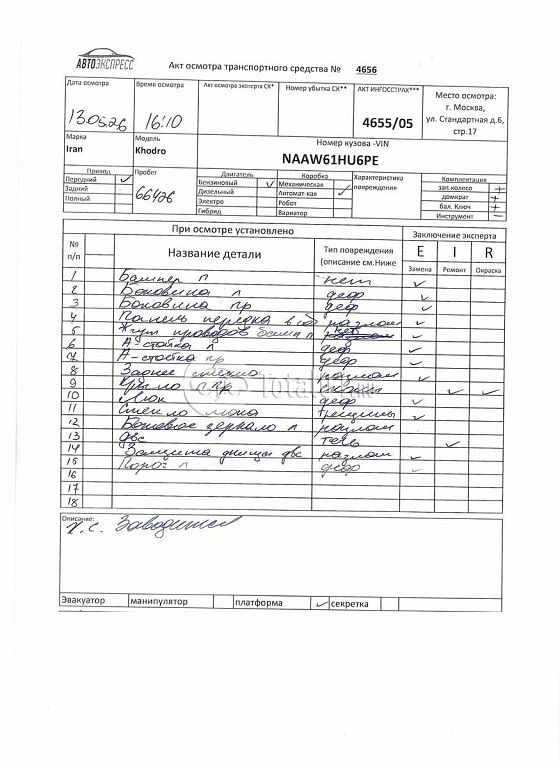 АВТОЭКСПРЕСС
Акт осмотра транспортного средства № 4656
Дата осмотра
Время осмотра
Акт осмотра эксперта СК*
Номер убытка СК**
АКТ ИНГОССТРАХ***
Место осмотра:
г. Москва,
ул. Стандартная д.6,
стр.17
16:10
4655/05
Марка
Модель
Номер кузова -VIN
Iran
Khodro
NAAW61HU6PE
Привод
Пробег
Двигатель
Коробка
Характеристика
повреждения
Комплектация
Передний
Бензиновый
Механическая
зап.колесо +
Задний
Дизельный
Автомат-кая
домкрат +
Полный
66426
Электро
Робот
бал. Ключ +
Гибрид
Вариатор
Инструмент -
При осмотре установлено
Заключение эксперта
№
п/п
Название детали
Тип повреждения
(описание см.Ниже
E I R
Замена Ремонт Окраска
1 Бампер п нет
2 Боковина л деф
3 Боковина пр деф
4 Панель передка в сб разлом
5 Жгут проводов нет
6 А-стойка л деф
7 А-стойка пр деф
8 Заднее стекло разлом
9 Крыло п пр сколы
10 Люк деф
11 Стекло люка трещины
12 Боковое зеркало л разлом
13 ДВС течь
14 Защита днища двс разлом
15 Порог л деф
16
17
18
TotalCar.RU
Описание:
х.с. Заводится
Эвакуатор манипулятор платформа секретка